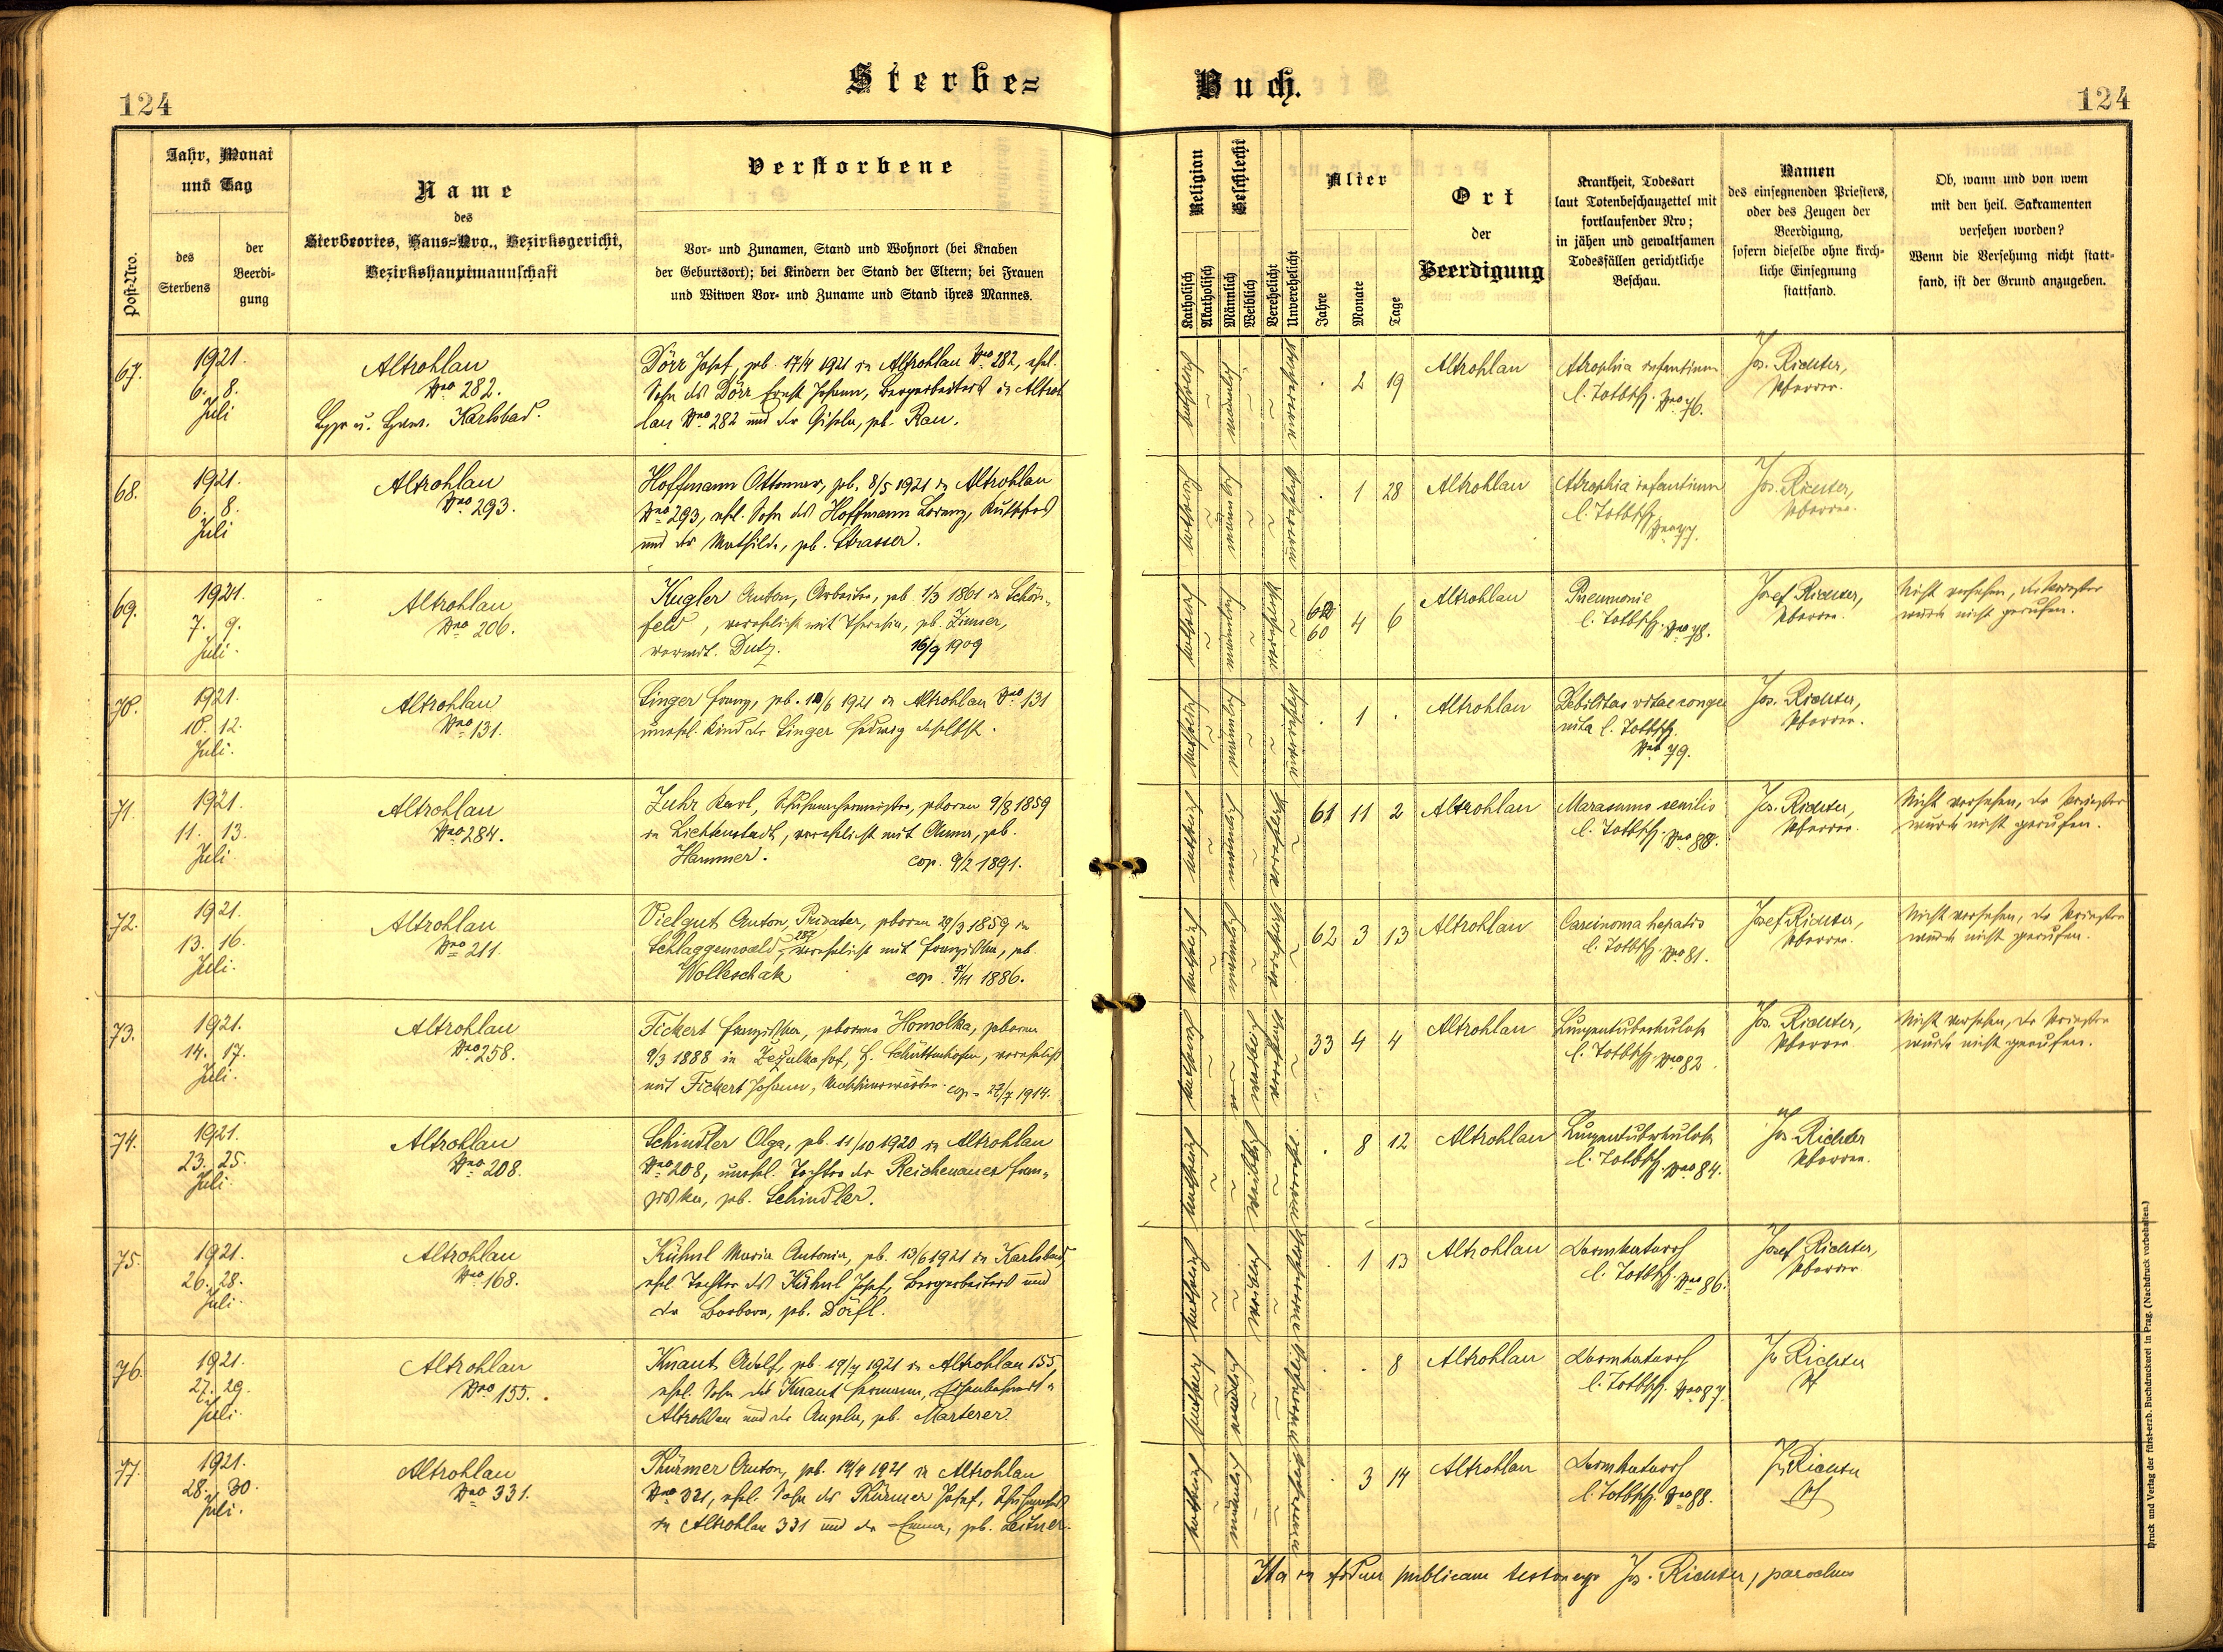 Sterbe=
Buch.
124
124
Post-Nro.
Jahr, Monat
und Tag
des
Sterbens
der
Beerdi-
gung
Name
des
Sterbeortes, Haus=Nro., Bezirksgericht,
Bezirkshauptmannschaft
Verstorbene
Vor- und Zunamen, Stand und Wohnort (bei Knaben
der Geburtsort); bei Kindern der Stand der Eltern; bei Frauen
und Witwen Vor- und Zuname und Stand ihres Mannes.
Religion
Katholisch
Akatholisch
Geschlecht
Männlich
Weiblich
Verehelicht
Unverehelicht
Alter
Jahre
Monate
Tage
Ort
der
Beerdigung
Krankheit, Todesart
laut Totenbeschauzettel mit
fortlaufender Nro;
in jähen und gewaltsamen
Todesfällen gerichtliche
Beschau.
Namen
des einsegnenden Priesters,
oder des Zeugen der
Beerdigung,
sofern dieselbe ohne kirch-
liche Einsegnung
stattfand.
Ob, wann und von wem
mit den heil. Sakramenten
versehen worden?
Wenn die Versehung nicht statt-
fand, ist der Grund anzugeben.
67.
1921.
6. 8.
Juli
Altrohlau
Nro 282.
Karlsbad.
Dörr Josef, geb. 17/4 1921 in Altrohlau Nro 282, ehel.
Sohn des Dörr Ernst Johann, Bergarbeiters in Altroh
lau Nro 282 und der Gisela, geb. Rau.
katholisch männlich unverehelicht
2 19
Altrohlau
Atrophia infantium
l. Totbsch. Nro 76.
Jos. Richter,
Pfarrer.
68.
1921.
6. 8.
Juli
Altrohlau
Nro 293.
Hoffmann Ottomar, geb. 8/5 1921 in Altrohlau
Nro 293, ehel. Sohn des Hoffmann Lorenz,
und der Mathilde, geb. Strasser.
katholisch männlich unverehelicht
1 28
Altrohlau
Atrophia infantium
l. Totbsch. Nro 77.
Jos. Richter,
Pfarrer.
69.
1921.
7. 9.
Juli.
Altrohlau
Nro 206.
Kugler Anton, Arbeiter, geb. 1/3 1861 in Schön-
feld, verehelicht mit Theresia, geb. Zimer,
verwit. Dutz. 16/9 1909
katholisch männlich verehelicht
60 4 6
Altrohlau
Pneumonie
l. Totbsch. Nro 78.
Josef Richter,
Pfarrer.
Nicht versehen, der Priester
wurde nicht gerufen.
70.
1921.
10. 12.
Juli.
Altrohlau
Nro 131.
Singer Franz, geb. 10/6 1921 in Altrohlau Nro 131
unehel. Kind der Singer Hedwig daselbst.
katholisch männlich unverehelicht
1
Altrohlau
Debilitas vitae conge
nita l. Totbsch.
Nro 79.
Jos. Richter,
Pfarrer.
71.
1921.
11. 13.
Juli
Altrohlau
Nro 284.
Zuhr Karl, Schuhmachermeister, geboren 9/8 1859
in Lichtenstadt, verehelicht mit Anna, geb.
Hammer. cop. 9/2 1891.
katholisch männlich verehelicht
61 11 2
Altrohlau
Marasmus senilis
l. Totbsch. Nro 80.
Jos. Richter,
Pfarrer.
Nicht versehen, der Priester
wurde nicht gerufen.
72.
1921.
13. 16.
Juli.
Altrohlau
Nro 211.
Vielgut Anton, Privater, geboren 29/3 1859 in
Schlaggenwald 287, verehelicht mit Franziska, geb.
Wolleschak cop. 7/11 1886.
katholisch männlich verehelicht
62 3 13
Altrohlau
Carcinoma hepatis
l. Totbsch. Nro 81.
Josef Richter,
Pfarrer.
Nicht versehen, der Priester
wurde nicht gerufen.
73.
1921.
14. 17.
Juli.
Altrohlau
Nro 258.
Fickert Franziska, geborene Homolka, geboren
9/3 1888 in Zezulkahof, B. Schüttenhofen, verehelicht
mit Fickert Johann, cop. 27/7 1914.
katholisch weiblich verehelicht
33 4 4
Altrohlau
Lungentuberkulose
l. Totbsch. Nro 82.
Jos. Richter,
Pfarrer
Nicht versehen, der Priester
wurde nicht gerufen.
74.
1921.
23. 25.
Juli
Altrohlau
Nro 208.
Schindler Olga, geb. 11/10 1920 in Altrohlau
Nro 208, unehel. Tochter der Reichenauer Fran-
ziska, geb. Schindler.
katholisch weiblich unverehelicht
8 12
Altrohlau
Lungentuberkulose
l. Totbsch. Nro 84.
Jos. Richter
Pfarrer.
75.
1921.
26. 28.
Juli.
Altrohlau
Nro 168.
Kühnl Maria Antonia, geb. 13/6 1921 in Karlsbad,
ehel. Tochter des Kühnl Josef, Bergarbeiters und
der Barbara, geb. Dörfl.
katholisch weiblich unverehelicht
1 13
Altrohlau
Darmkatarrh
l. Totbsch. Nro 86.
Josef Richter,
Pfarrer
76.
1921.
27. 29.
Juli.
Altrohlau
Nro 155.
Knaut Adolf, geb. 19/7 1921 in Altrohlau 155,
ehel. Sohn des Knaut Hermann,
Altrohlau und der Angela, geb. Marterer.
katholisch männlich unverehelicht
8
Altrohlau
Darmkatarrh
l. Totbsch. Nro 87.
Jos Richter
Pf
77.
1921.
28. 30.
Juli.
Altrohlau
Nro 331.
Thürmer Anton, geb. 14/4 1921 in Altrohlau
Nro 331, ehel. Sohn des Thürmer Josef,
in Altrohlau 331 und der Emma, geb. Leitner.
katholisch männlich unverehelicht
3 14
Altrohlau
Darmkatarrh
l. Totbsch. Nro 88.
Jos Richter
Pf
Ita in fidem publicam testor ego Jos. Richter, parochus
Druck und Verlag der fürst-erzb. Buchdruckerei in Prag. (Nachdruck vorbehalten.)